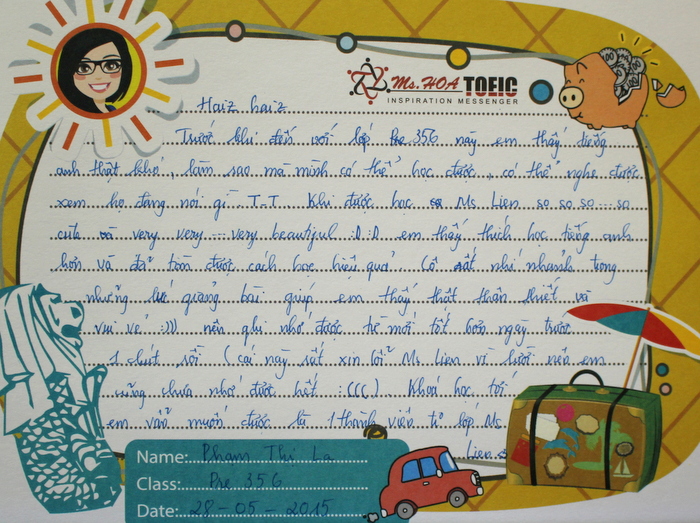 Ms. HOA TOEIC
INSPIRATION MESSENGER
Haiz haiz
Trước khi đến với lớp Pre 356 này em thấy tiếng
anh thật khó, làm sao mà mình có thể học được, có thể nghe được
xem họ đang nói gì T-T Khi được học Ms Lien so so so ... so
cute và very very ... very beautiful :D :D em thấy thích học tiếng anh
hơn và đã tìm được cách học hiệu quả. Cô rất nhí nhảnh trong
những lúc giảng bài giúp em thấy thật thân thiết và
vui vẻ :))) nên ghi nhớ được từ mới tốt hơn ngày trước
1 chút rồi (cái này rất xin lỗi Ms Lien vì lười nên em
cũng chưa nhớ được hết :((( ). Khoá học tới
em vẫn muốn được là 1 thành viên từ lớp Ms.
Lien.
Name: Phạm Thị La
Class: Pre 356
Date: 28-05-2015